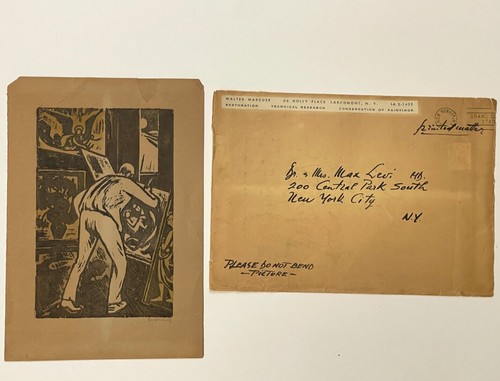 WALTER MARCUSE 20 HOLLY PLACE LARCHMONT, N. Y. LA 2-1422
RESTORATION TECHNICAL RESEARCH CONSERVATION OF PAINTINGS
printed matter
Dr. & Mrs. Max Levi MD.
200 Central Park South
New York City
N.Y.
PLEASE DO NOT BEND
— PICTURE —